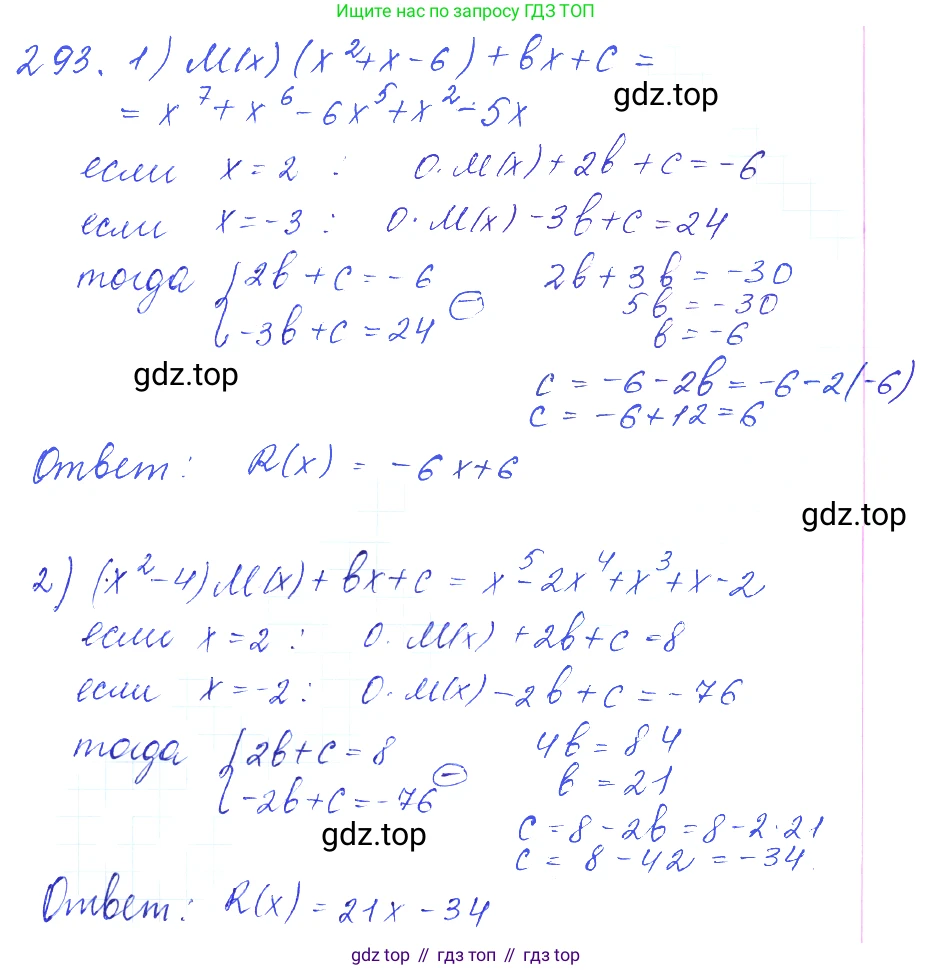 Ищите нас по запросу ГДЗ ТОП
293. 1) M(x) (x² + x - 6) + bx + c =
= x⁷ + x⁶ - 6x⁵ + x² - 5x
gdz.top
если x = 2 : 0 · M(x) + 2b + c = -6
если x = -3 : 0 · M(x) - 3b + c = 24
тогда { 2b + c = -6 2b + 3b = -30
-3b + c = 24 ⊖ 5b = -30
b = -6
gdz.top
c = -6 - 2b = -6 - 2(-6)
c = -6 + 12 = 6
Ответ: R(x) = -6x + 6
gdz.top
2) (x² - 4) M(x) + bx + c = x⁵ - 2x⁴ + x³ + x - 2
если x = 2 : 0 · M(x) + 2b + c = 8
если x = -2 : 0 · M(x) - 2b + c = -76
тогда { 2b + c = 8 4b = 84
-2b + c = -76 ⊖ b = 21
gdz.top
c = 8 - 2b = 8 - 2 · 21
c = 8 - 42 = -34.
Ответ: R(x) = 21x - 34
gdz.top // гдз топ // гдз.топ